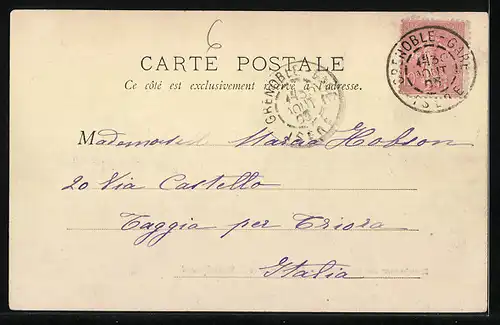 6
CARTE POSTALE
Ce côté est exclusivement réservé à l'adresse.
GRENOBLE - GARE
ISERE
GRENOBLE - GARE
AOUT
ISERE
Mademoisel Hobson
20 Via Castello
Taggia per Triora
Italia